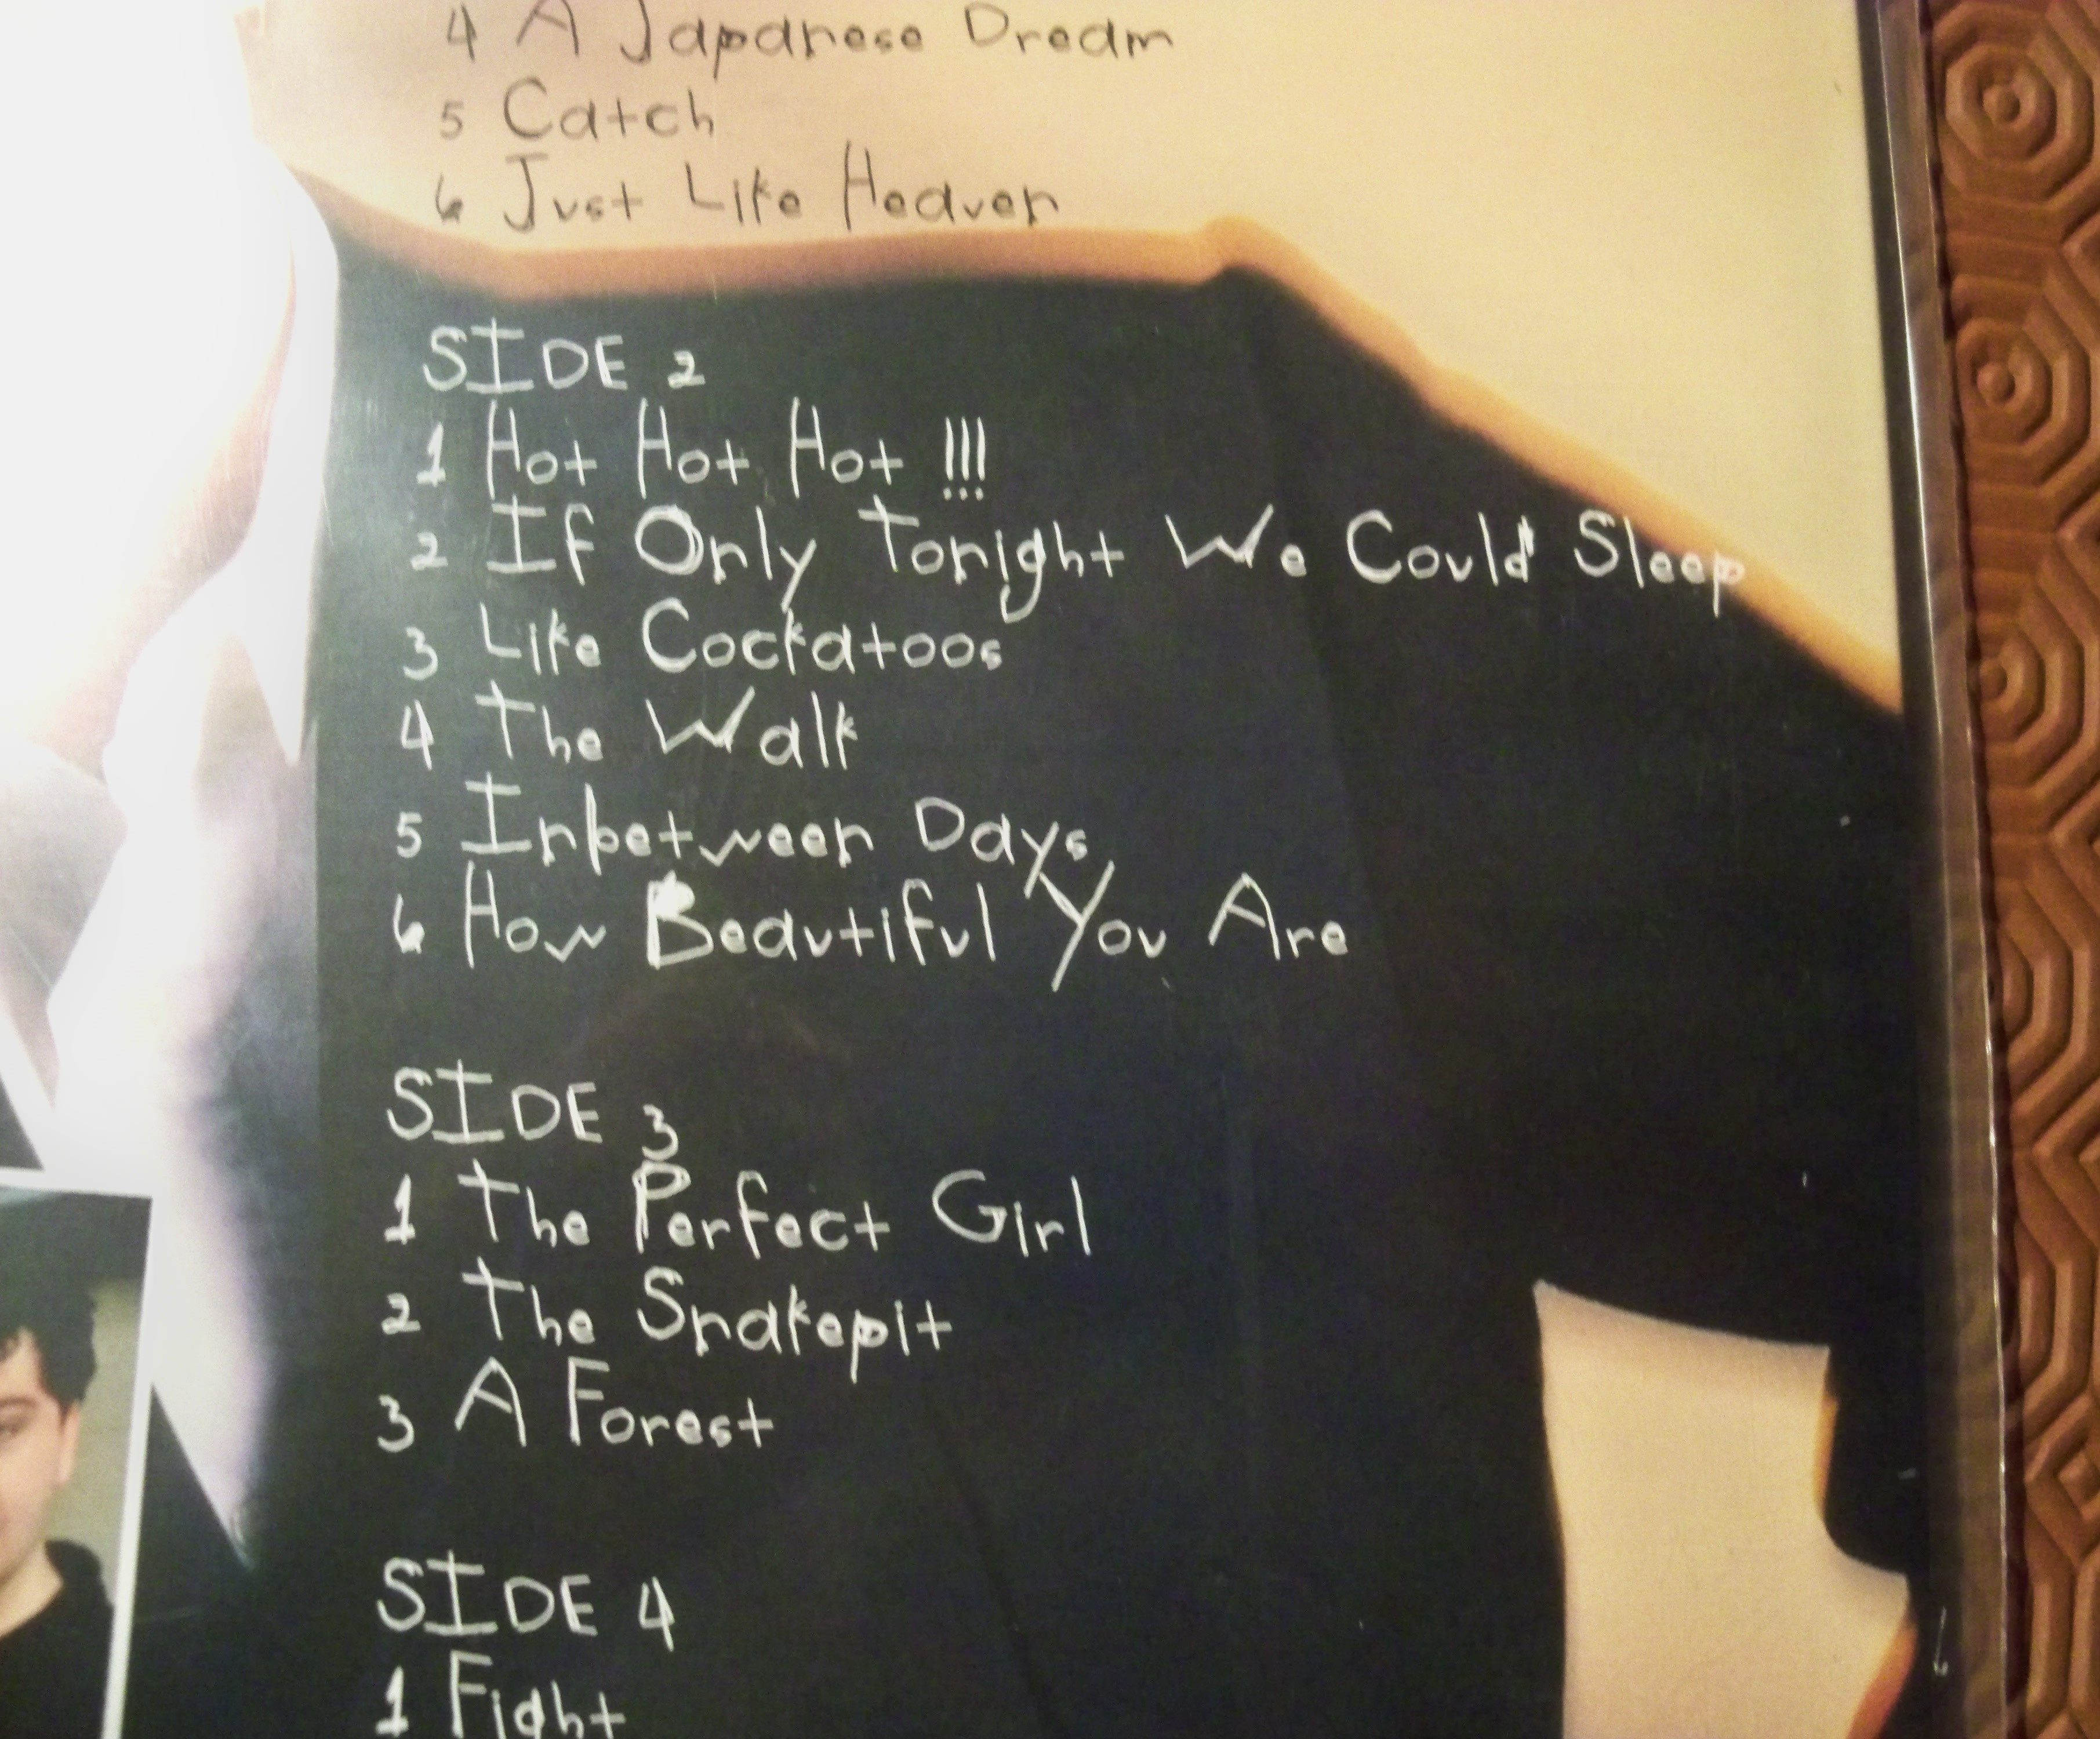 4 A Japanese Dream
5 Catch
6 Just Like Heaven
SIDE 2
1 Hot Hot Hot !!!
2 If Only Tonight We Could Sleep
3 Like Cockatoos
4 The Walk
5 Inbetween Days
6 How Beautiful You Are
SIDE 3
1 The Perfect Girl
2 The Snakepit
3 A Forest
SIDE 4
1 Fight